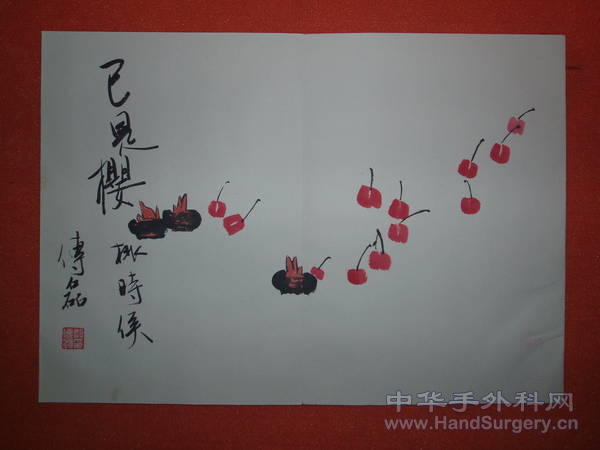 已見櫻
桃時侯
傅磊
中华手外科网
www.HandSurgery.cn